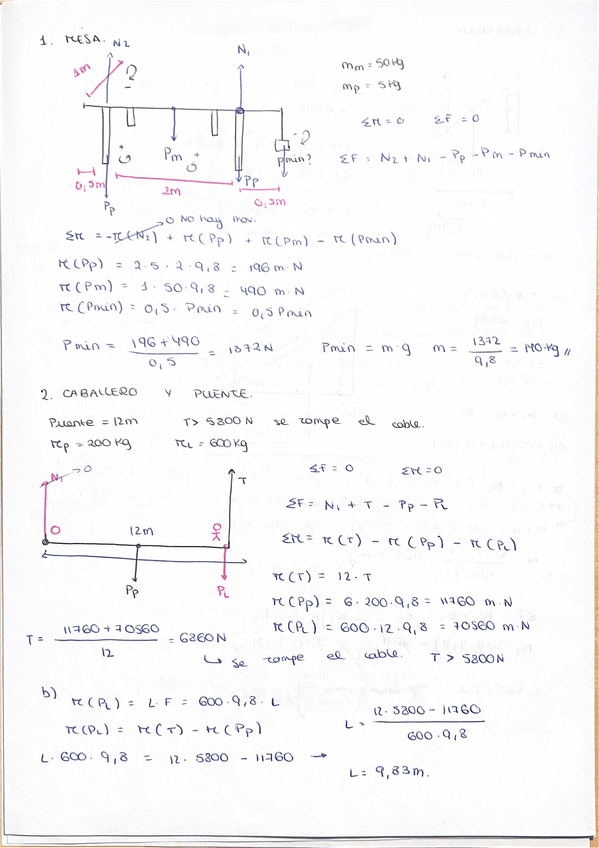 1. MESA.
N2
N1
1m
mm = 50 kg
mp = 5 kg
ΣM = 0 ΣF = 0
Pm
Pmin?
ΣF = N2 + N1 - Pp - Pm - Pmin
0,5m
2m
Pp
0,5m
Pp
0 No hay mov.
ΣM = -M(N2) + M(Pp) + M(Pm) - M(Pmin)
M(Pp) = 2·5·2·9,8 = 196 m·N
M(Pm) = 1·50·9,8 = 490 m·N
M(Pmin) = 0,5·Pmin = 0,5 Pmin
Pmin = (196 + 490) / 0,5 = 1372 N Pmin = m·g m = 1372 / 9,8 = 140 kg //
2. CABALLERO Y PUENTE.
Puente = 12m T > 5800 N se rompe el cable.
Mp = 200 kg ML = 600 kg
N1 → 0
T
ΣF = 0 ΣM = 0
ΣF = N1 + T - Pp - PL
O
12m
OK
ΣM = M(T) - M(Pp) - M(PL)
M(T) = 12·T
Pp
PL
M(Pp) = 6·200·9,8 = 11760 m·N
M(PL) = 600·12·9,8 = 70560 m·N
T = (11760 + 70560) / 12 = 6860 N
↳ se rompe el cable. T > 5800 N
b) M(PL) = L·F = 600·9,8·L
M(PL) = M(T) - M(Pp)
L = (12·5800 - 11760) / (600·9,8)
L·600·9,8 = 12·5800 - 11760 →
L = 9,83 m.